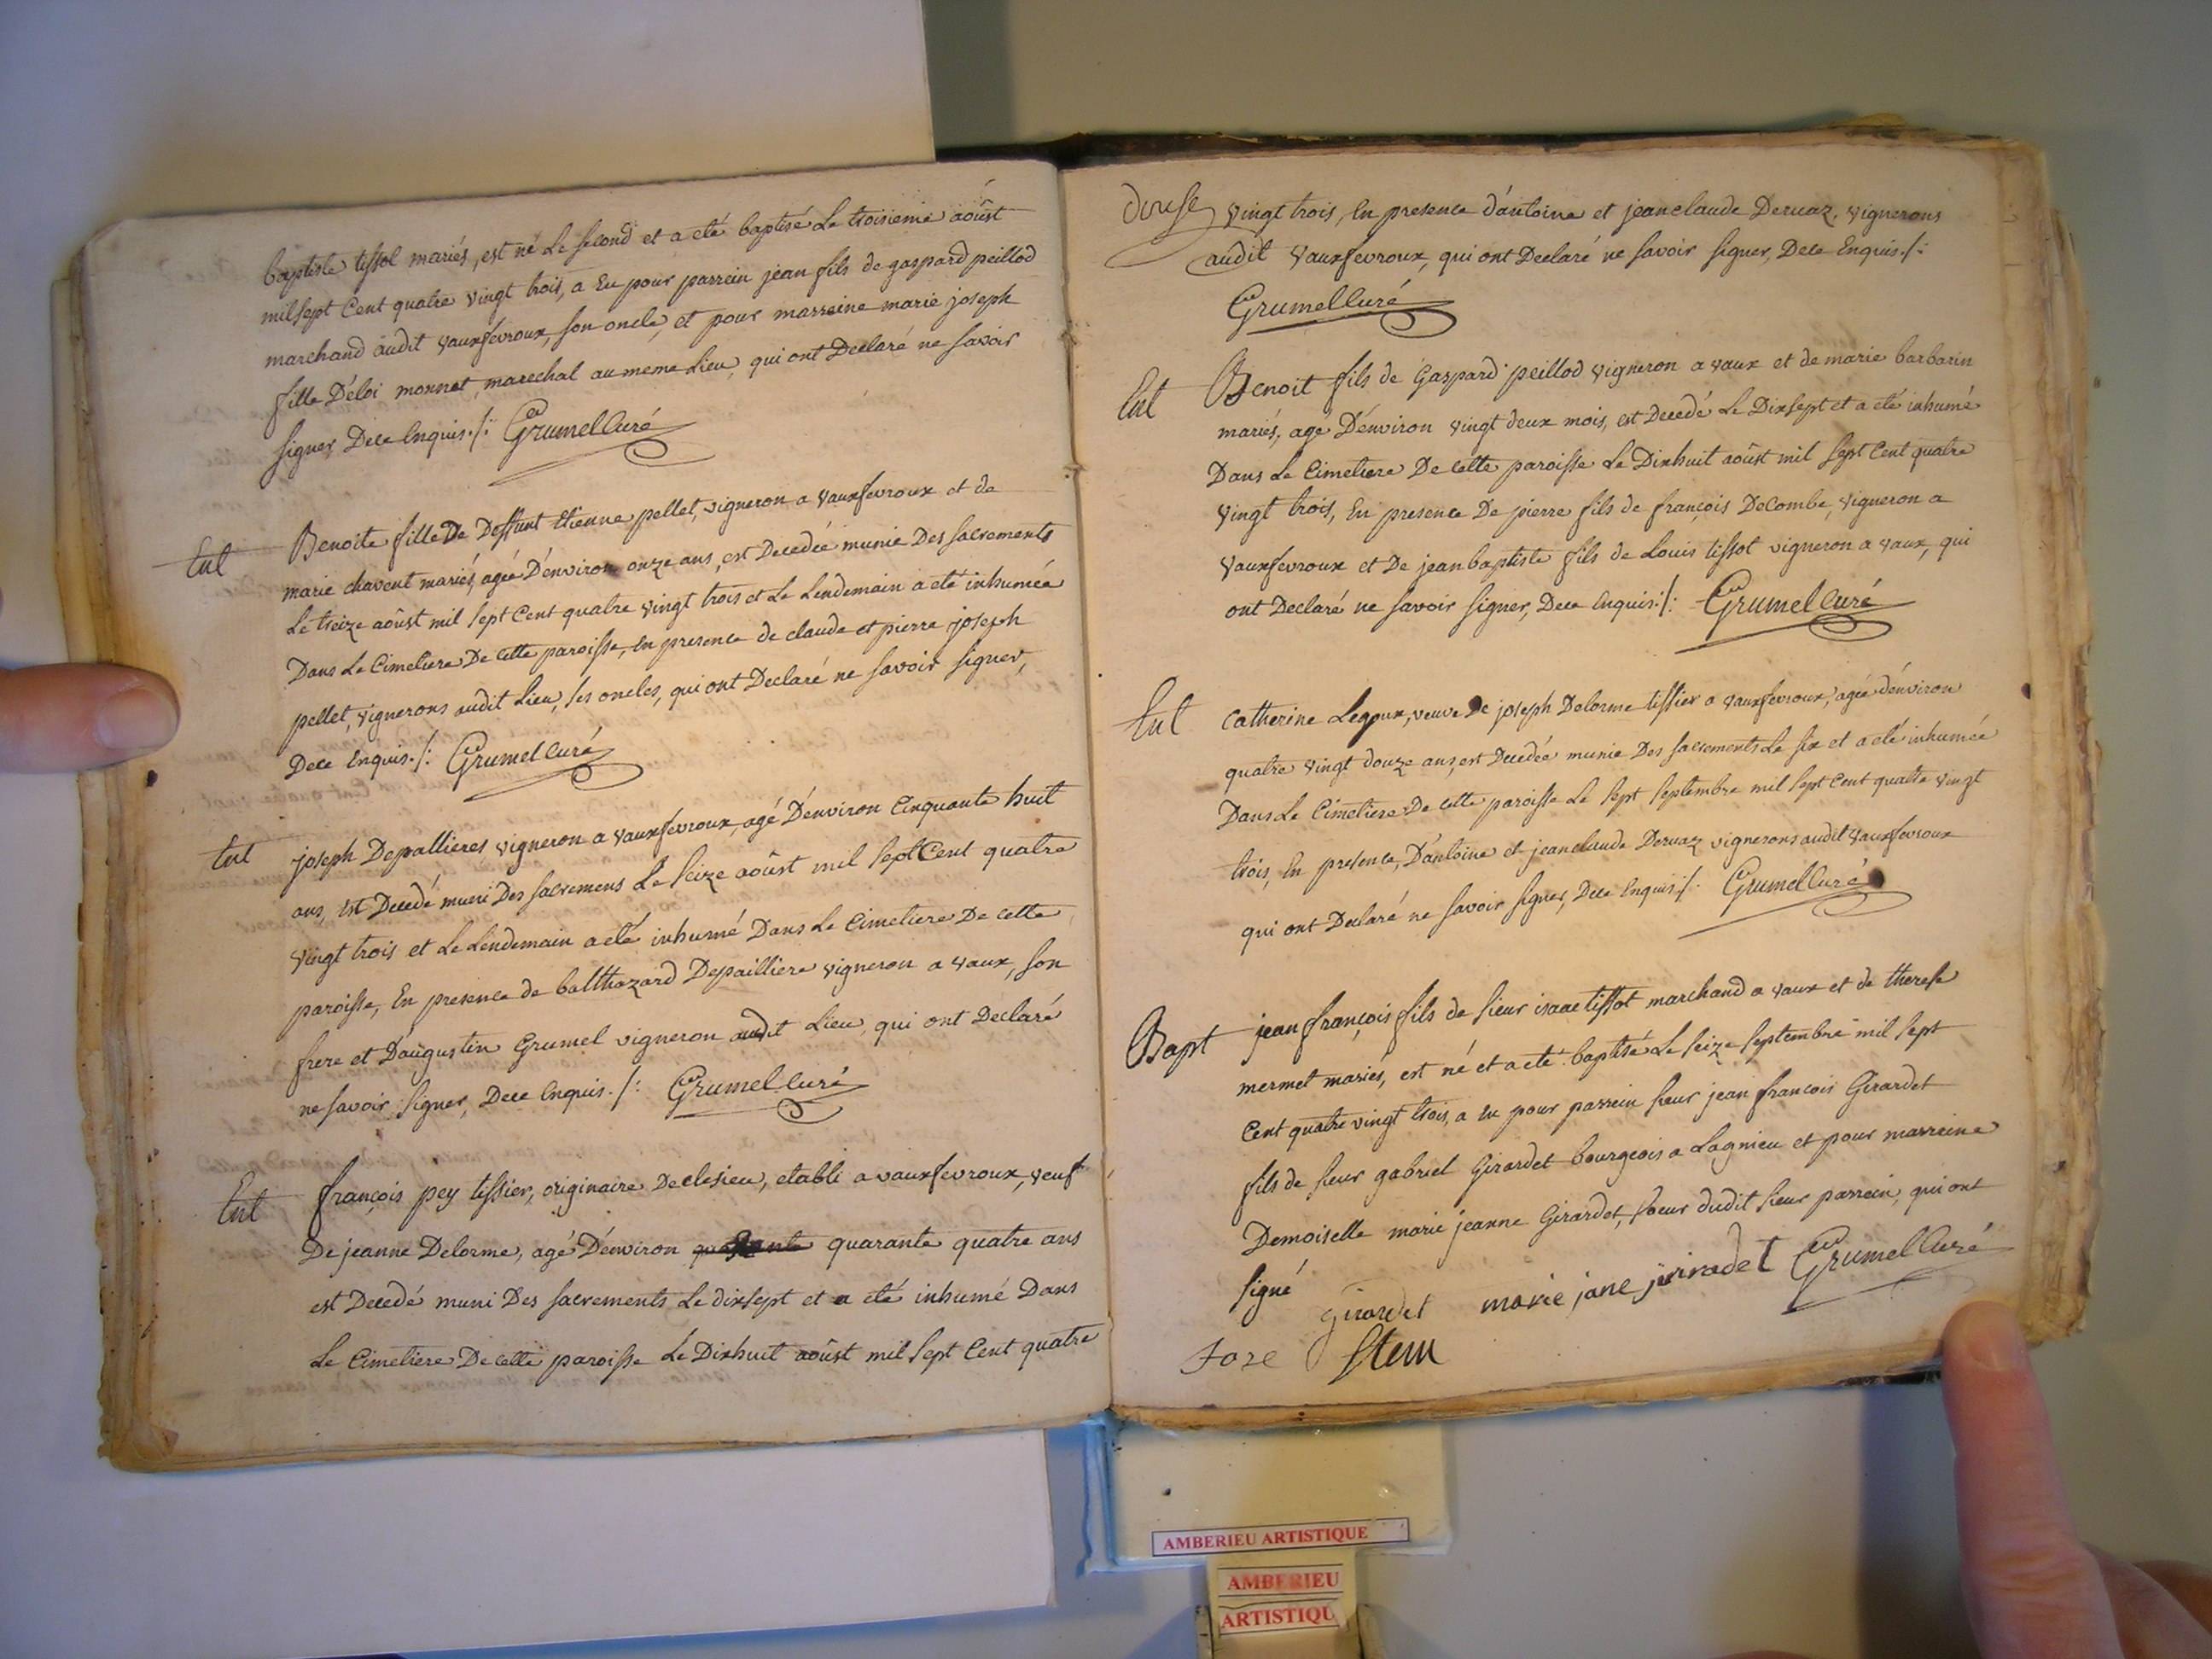 baptiste tissot mariés, est né Le second et a eté baptisé Le troisieme aoûst
mil sept Cent quatre vingt trois, a Eu pour parrein jean fils de gaspard peillod
marchand audit vauxfevroux, son oncle, et pour marreine marie joseph
fille D'éloi monnet, marechal au meme Lieu, qui ont Declaré ne savoir
signer, Dece Enquis./: Grumel Curé
Ent Benoite fille De Deffunt Etienne pellet, vigneron a vauxfevroux et de
marie chavent mariés, agée D'environ onze ans, est Decedée munie Des sacrements
Le treize aoûst mil sept Cent quatre vingt trois et Le Lendemain a eté inhumée
Dans Le Cimetiere De cette paroisse, En presence de claude et pierre joseph
pellet, vignerons audit Lieu, ses oncles, qui ont Declaré ne savoir signer,
Dece Enquis./: Grumel Curé
Ent joseph Depallieres vigneron a vauxfevroux, agé D'environ Cinquante huit
ans, est Decedé muni Des sacremens Le seize aoûst mil sept Cent quatre
vingt trois et Le Lendemain a eté inhumé Dans Le Cimetiere De cette
paroisse, En presence de balthazard Depailliere vigneron a vaux, son
frere et D'augustin Grumel vigneron audit Lieu, qui ont Declaré
ne savoir signer, Dece Enquis./: Grumel Curé
Ent françois pey tissier, originaire De clesieu, etabli a vauxfevroux, veuf
De jeanne Delorme, agé D'environ quarante quatre ans
est Decedé muni Des sacrements Le dixsept et a eté inhumé Dans
Le Cimetiere De cette paroisse Le Dixhuit aoûst mil sept Cent quatre
douse vingt trois, En presence d'antoine et jeanclaude Dervaz, vignerons
audit vauxfevroux, qui ont Declaré ne savoir signer, Dece Enquis./:
Grumel Curé
Ent Benoit fils de Gaspard peillod vigneron a vaux et de marie barbarin
mariés, agé D'environ vingt deux mois, est Decedé Le Dixsept et a eté inhumé
Dans Le Cimetiere De cette paroisse Le Dixhuit aoûst mil sept Cent quatre
vingt trois, En presence De pierre fils de françois DeCombe, vigneron a
vauxfevroux et De jean baptiste fils de Louis tissot vigneron a vaux, qui
ont Declaré ne savoir signer, Dece Enquis./: Grumel Curé
Ent catherine Legoux, veuve De joseph Delorme tissier a vauxfevroux, agée d'environ
quatre vingt douze ans, est Decedée munie Des sacrements Le six et a eté inhumée
Dans Le Cimetiere De cette paroisse Le sept septembre mil sept Cent quatre vingt
trois, En presence, D'antoine et jeanclaude Dervaz vignerons audit vauxfevroux
qui ont Declaré ne savoir signer, Dece Enquis./: Grumel Curé
Bapt jean françois fils de sieur isaac tissot marchand a vaux et de therese
mermet mariés, est né et a eté baptisé Le seize septembre mil sept
Cent quatre vingt trois, a Eu pour parrein sieur jean francois Girardet
fils de sieur gabriel Girardet bourgeois a Lagnieu et pour marreine
Demoiselle marie jeanne Girardet, soeur dudit sieur parrein, qui ont
signé girardet marie jane jirradet Grumel Curé
AMBERIEU ARTISTIQUE
AMBERIEU
ARTISTIQU